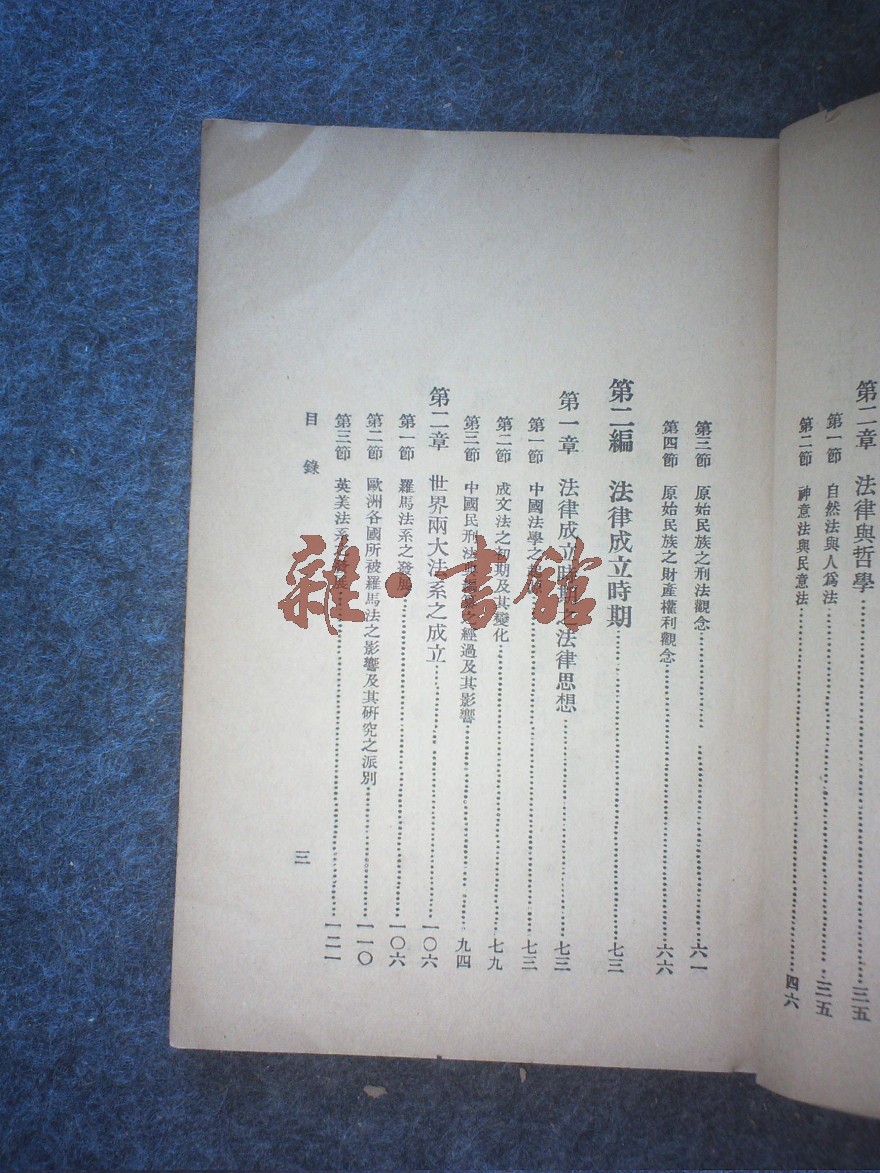 第二章 法律與哲學……三五
第一節 自然法與人爲法……三五
第二節 神意法與民意法……四六
第三節 原始民族之刑法觀念……六一
第四節 原始民族之財產權利觀念……六六
第二編 法律成立時期……七三
第一章 法律成立時期之法律思想……七三
第一節 中國法學之源……七三
第二節 成文法之初期及其變化……七九
第三節 中國民刑法之經過及其影響……九四
第二章 世界兩大法系之成立……一〇六
第一節 羅馬法系之發展……一〇六
第二節 歐洲各國所被羅馬法之影響及其研究之派別……一一〇
第三節 英美法系之發展……一二一
目錄
三
雜·書館